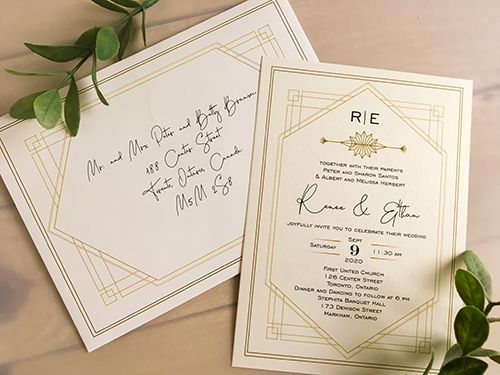 Mr. and Mrs. Peter and Betty Branson
188 Center Street
Toronto, Ontario, Canada
M5M 2S8
R|E
TOGETHER WITH THEIR PARENTS
PETER AND SHARON SANTOS
& ALBERT AND MELISSA HERBERT
Renee & Ethan
JOYFULLY INVITE YOU TO CELEBRATE THEIR WEDDING
SEPT
SATURDAY 9 11:30 AM
2020
FIRST UNITED CHURCH
126 CENTER STREET
TORONTO, ONTARIO
DINNER AND DANCING TO FOLLOW AT 6 PM
STEPHITA BANQUET HALL
173 DENISON STREET
MARKHAM, ONTARIO